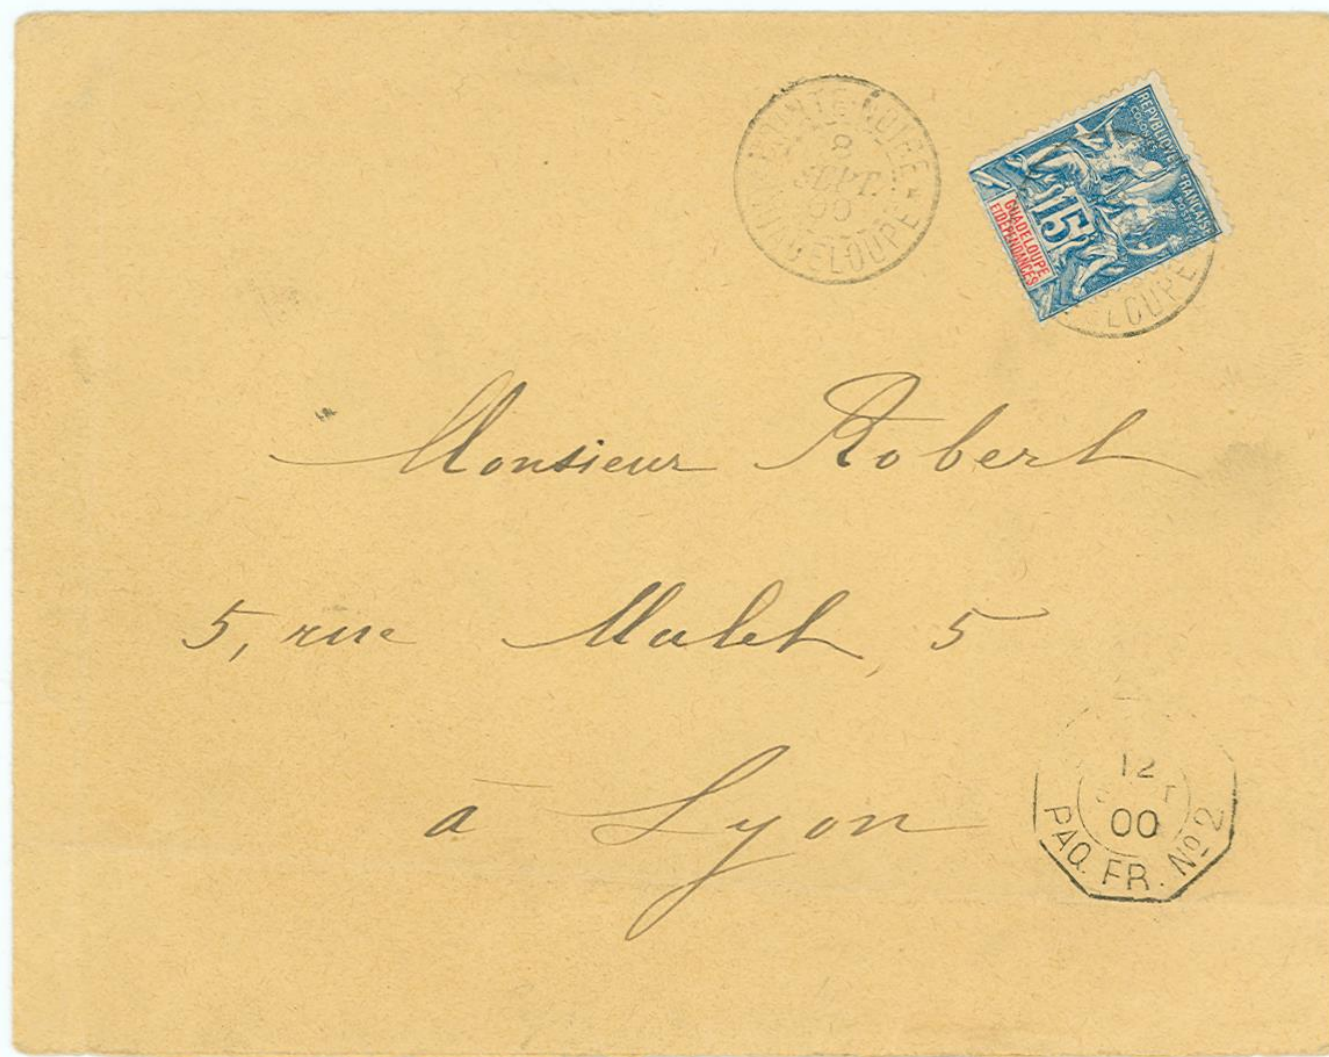 POINTE-NOIRE
8
SEPT.
00
GUADELOUPE
REPUBLIQUE FRANÇAISE
COLONIES
POSTES
15
GUADELOUPE
ET DÉPENDANCES
ELOUPE
Monsieur Robert
5, rue Malet, 5
à Lyon
12
00
PAQ. FR. Nº 2